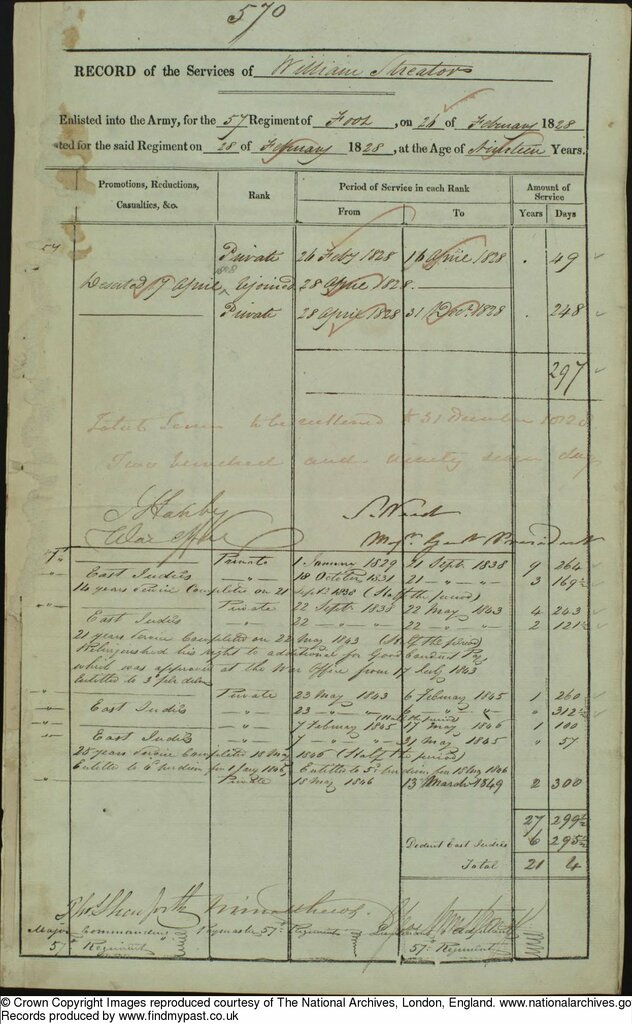 570
RECORD of the Services of William Streators
Enlisted into the Army, for the 57 Regiment of Foot, on 26 of February 1828
ted for the said Regiment on 28 of February 1828, at the Age of Nineteen Years.
Promotions, Reductions, Casualties, &c. Rank Period of Service in each Rank Amount of Service
From To Years Days
57
Private 26 Feby 1828 16 April 1828 . 49
Deserted 17 April 1828 Rejoined 28 April 1828
Private 28 April 1828 31 Decr. 1828 . 248
297
Total to be reckoned to 31 December 1828
Two hundred and ninety seven days
War Office Majr. Genl. President
Private 1 January 1829 21 Sept. 1838 9 264
East Indies " 18 October 1831 21 " " 3 169½
14 years Service Completed on 21 Sept. 1838 (Half the period)
" Private 22 Sept. 1838 22 May 1843 4 243
East Indies " 22 " " 22 " " 2 121½
21 years Service Completed on 22 May 1843 (Half the period)
Relinquished his right to additional for Good Conduct Pay
which was approved at the War Office from 17 July 1843
Entitled to 3d per diem
" Private 23 May 1843 6 Febuary 1845 1 260
" East Indies " 23 " " 6 " " " 312½
(Half the period)
" " 7 Febuary 1845 17 May 1846 1 100
" East Indies " 7 " " 31 May 1845 " 57
25 years Service Completed 18 May 1846 (Half the period)
Entitled to 4d per diem from 1 Jany 1846 Entitled to 5d per diem from 18 May 1846
" Private 18 May 1846 13 March 1849 2 300
27 299½
Deduct East Indies 6 295½
Total 21 4
Major Commanding Paymaster 57th Regiment Adjutant
57th Regiment 57th Regiment
© Crown Copyright Images reproduced courtesy of The National Archives, London, England. www.nationalarchives.go
Records produced by www.findmypast.co.uk